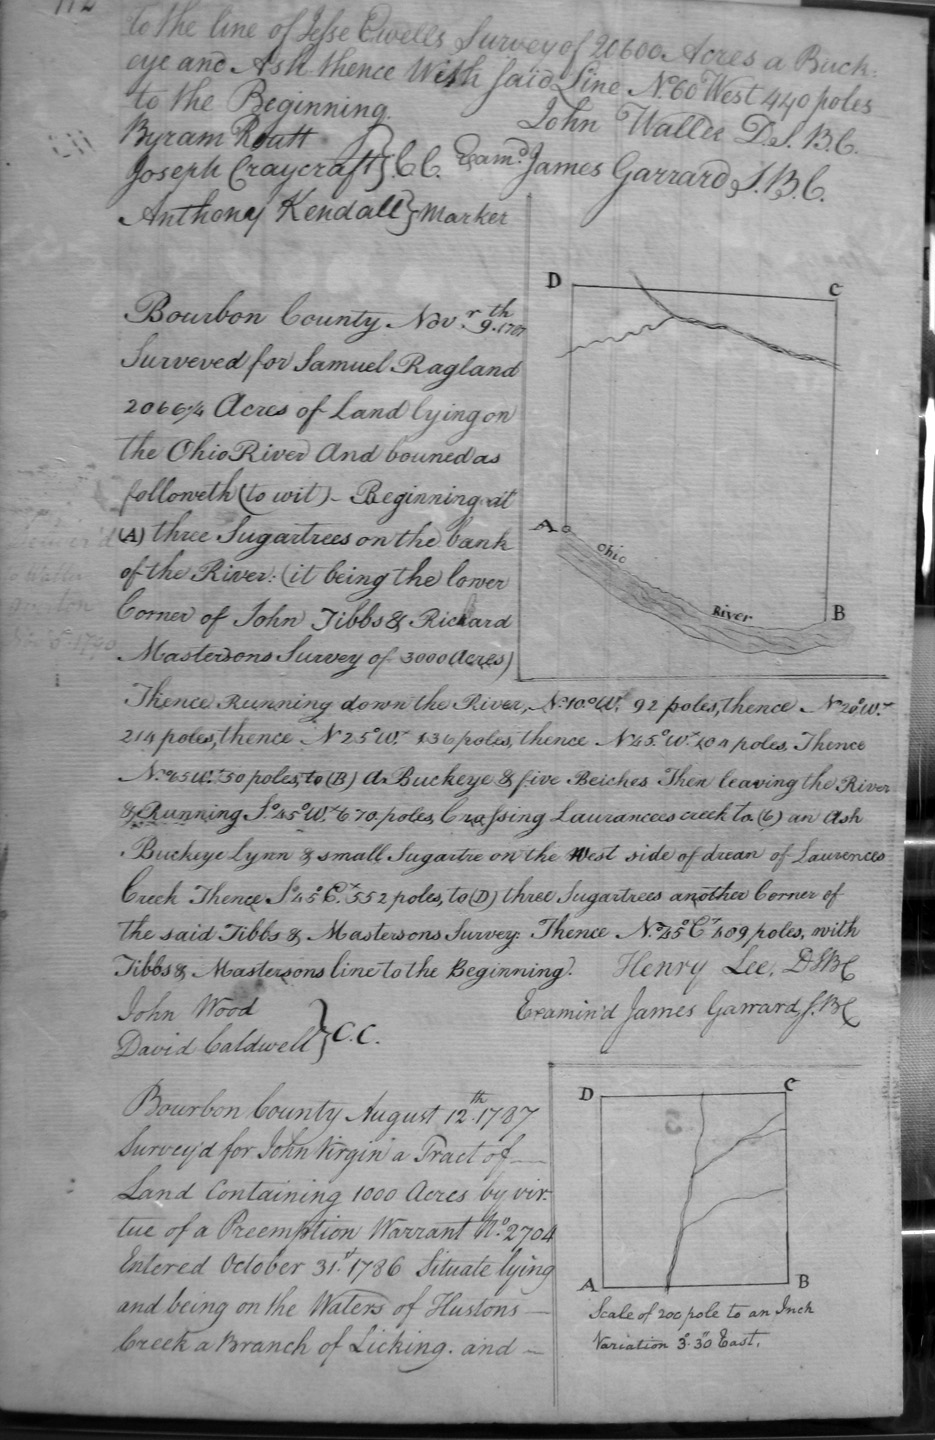 112
to the line of Jesse Ewells Survey of 20600 Acres a Buck-
eye and Ash thence With said Line N.60 West 440 poles
to the Beginning.
John Waller D.S.B.C.
Byram Routt
Joseph Craycraft } C C. Exam.d James Garrard S.B.C.
Anthony Kendall } Marker
D C
Bourbon County Nov.r 9.th 1787
Surveyed for Samuel Ragland
2066 3/4 Acres of Land lying on
the Ohio River And bouned as
followeth (to wit) - Beginning at
(A) three Sugartrees on the bank
of the River: (it being the lower
Corner of John Tibbs & Richard
Mastersons Survey of 3000 Acres)
A Ohio River B
Thence Running down the River, N.10° W.t 92 poles, thence N 20° W.t
214 poles, thence N 25° W.t 136 poles, thence N 45.° W.t 104 poles, Thence
N. 65 W.t 50 poles, to (B) A Buckeye & five Beiches Then leaving the River
& Running S.° 45° W.t 670 poles, Crossing Laurancees creek to (C) an Ash
Buckeye Lynn & small Sugartre on the West side of drean of Laurences
Creek Thence S° 45° E.t 552 poles, to (D) three Sugartrees another Corner of
the said Tibbs & Mastersons Survey. Thence N.° 45° E.t 409 poles, with
Tibbs & Mastersons line to the Beginning. Henry Lee. D S B C
John Wood
David Caldwell } C.C.
Examin'd James Garrard S.B C
D C
Bourbon County August 12.th 1787
Survey'd for John Virgin a Tract of
Land Containing 1000 Acres by vir-
tue of a Preemption Warrant N.° 2704
Entered October 31.st 1786 Situate lying
and being on the Waters of Hustons
Creek a Branch of Licking. and
A B
Scale of 200 pole to an Inch
Variation 3.° 30" East.